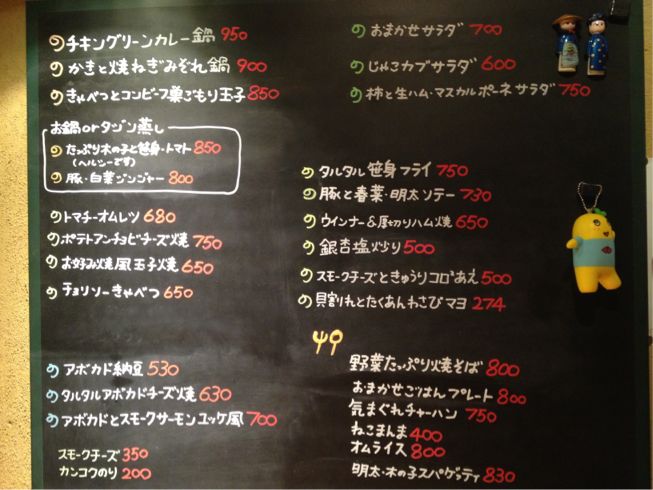 の チキングリーンカレー鍋 950
の かきと焼ねぎみぞれ鍋 900
の きゃべつとコンビーフ巣ごもり玉子 850
お鍋orタジン蒸し
の たっぷり木の子と笹身・トマト 850
(ヘルシーです)
の 豚・白菜ジンジャー 800
の トマチーオムレツ 680
の ポテトアンチョビチーズ焼 750
の お好み焼風玉子焼 650
の チョリソーきゃべつ 650
の アボカド納豆 530
の タルタルアボカドチーズ焼 630
の アボカドとスモークサーモンユッケ風 700
スモークチーズ 350
カンコクのり 200
の おまかせサラダ 700
の じゃこカブサラダ 600
の 柿と生ハム・マスカルポーネサラダ 750
の タルタル笹身フライ 750
の 豚と春菜・明太ソテー 730
の ウインナー&厚切りハム焼 650
の 銀杏塩炒り 500
の スモークチーズときゅうりコロコロあえ 500
の 貝割れとたくあんわさびマヨ 274
野菜たっぷり焼そば 800
おまかせごはんプレート 800
気まぐれチャーハン 750
ねこまんま 400
オムライス 800
明太・木の子スパゲッティ 830